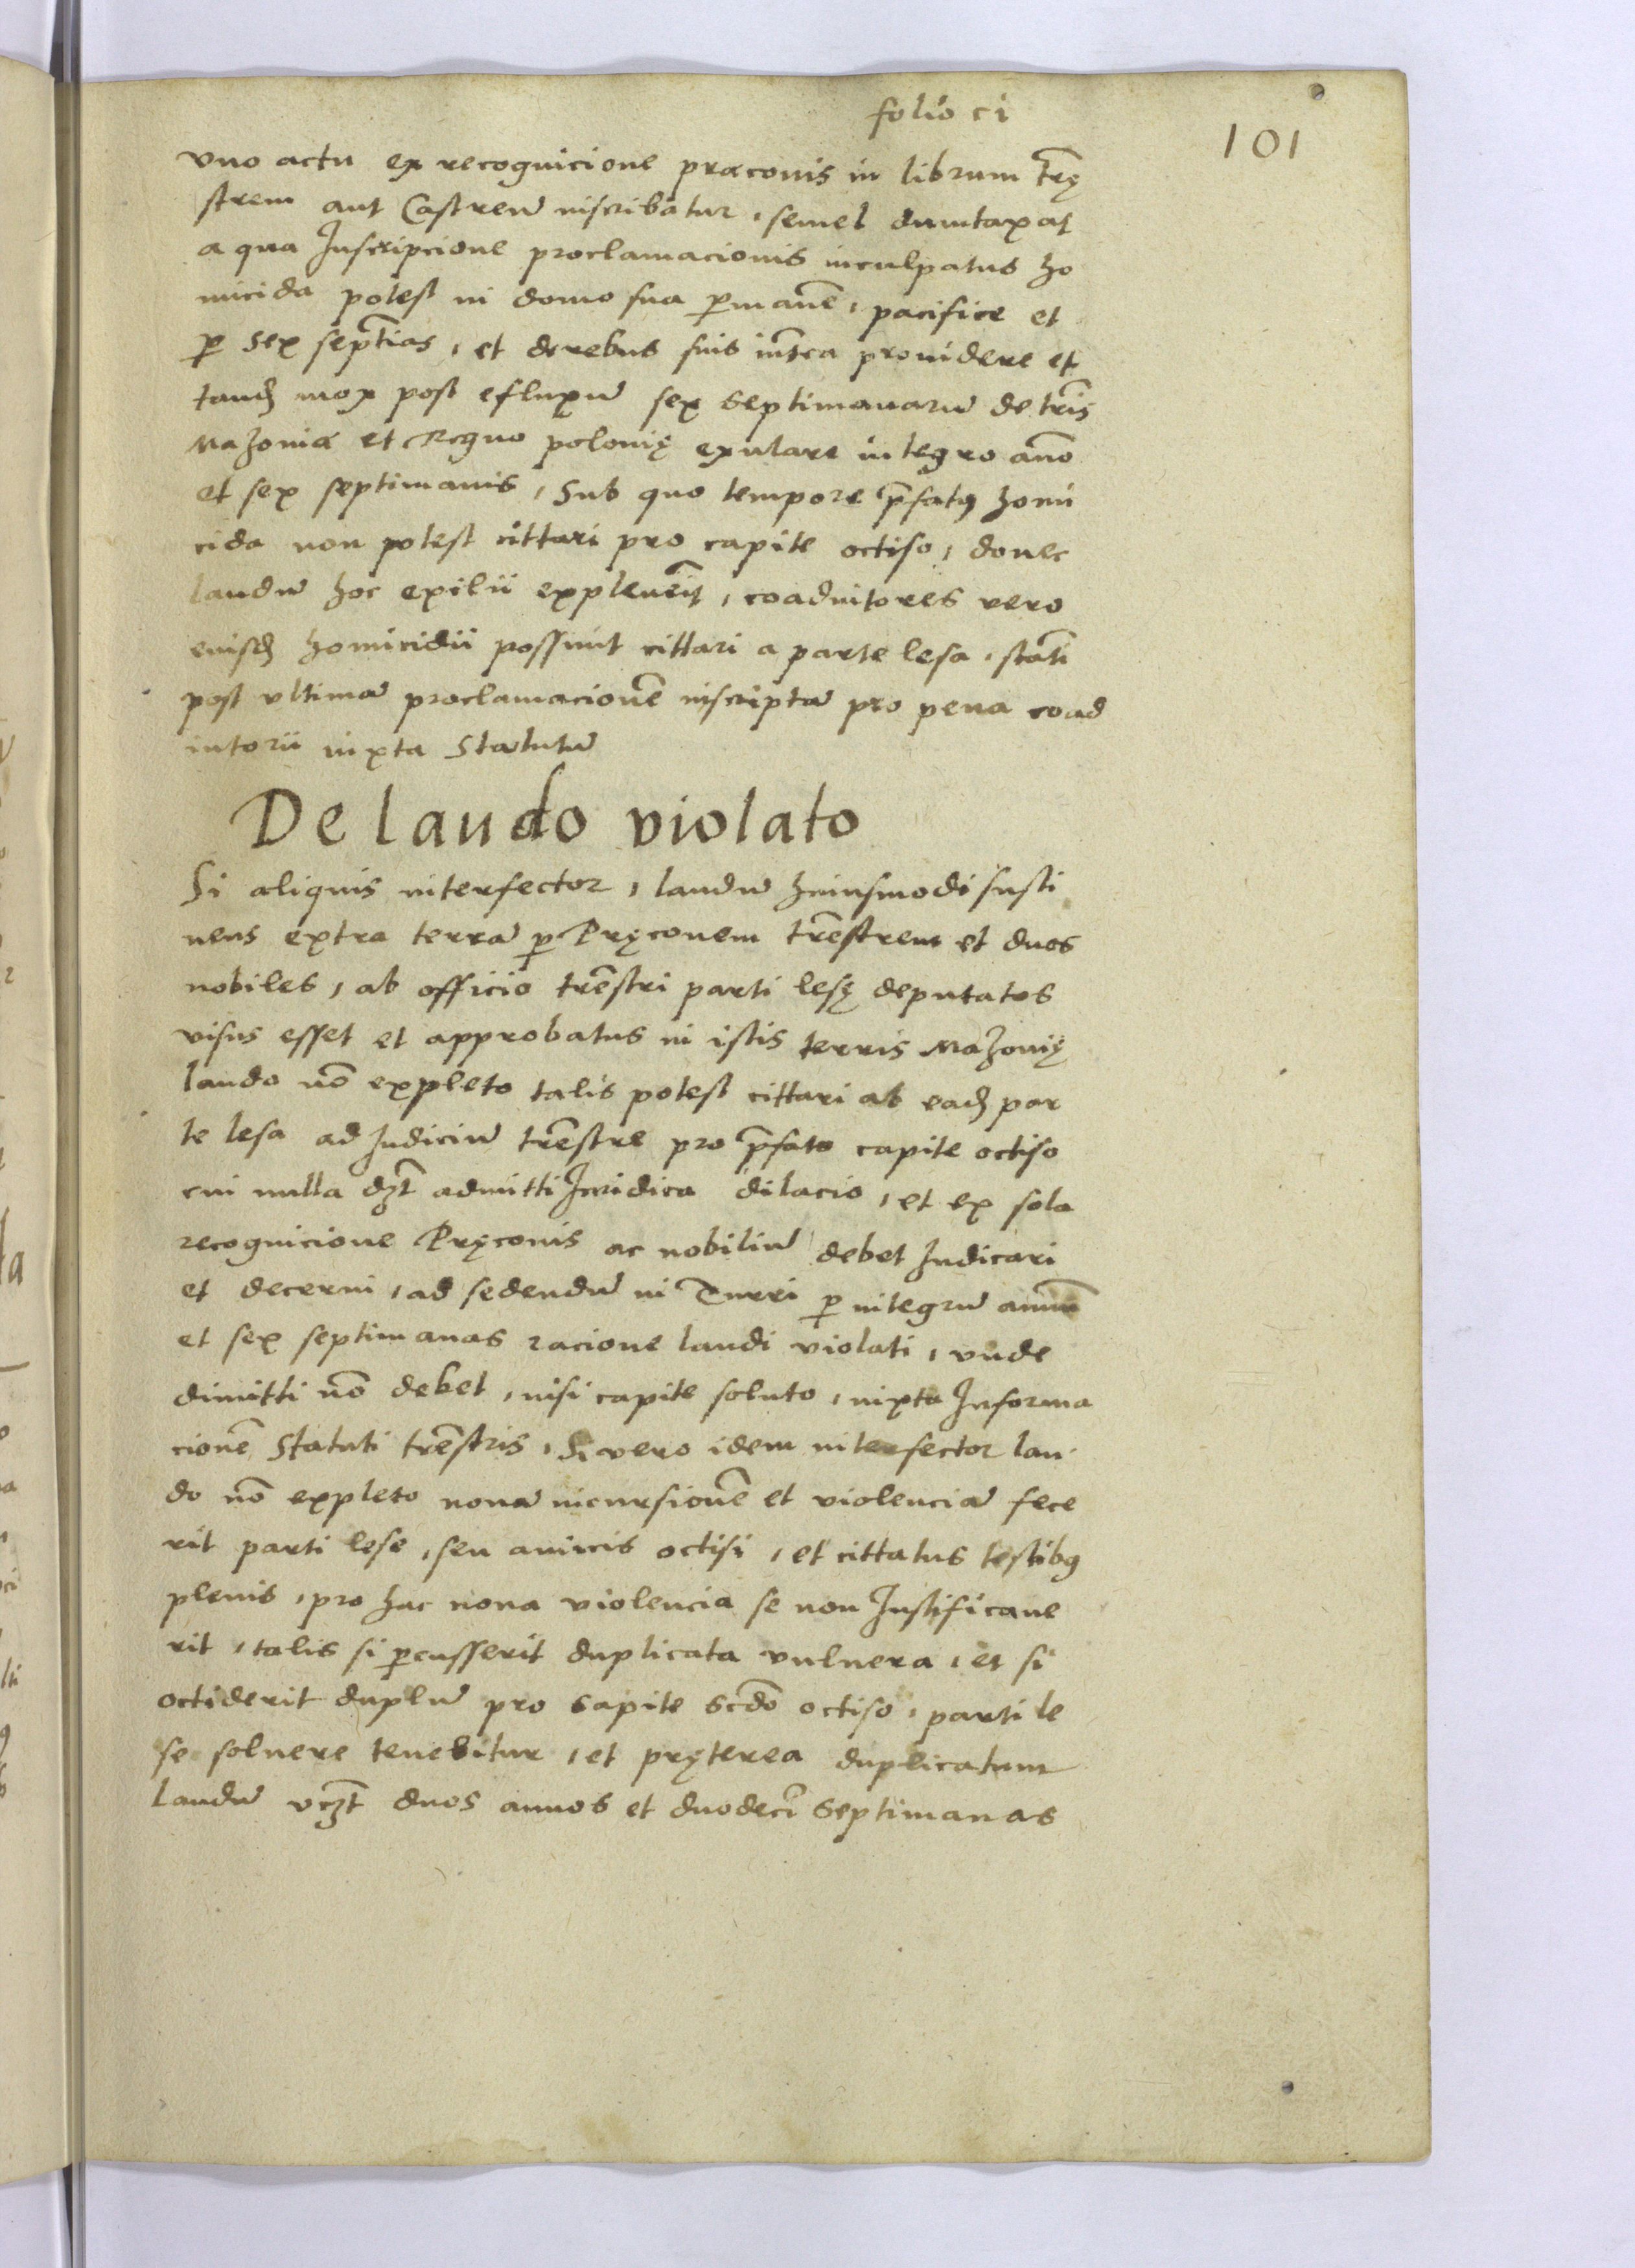 folio ci
101
vno actu ex recognicione præconis in librum tr̃ę
strem aut Castreu̅ inscribatur, semel dumtaxat
a qua Inscripcione proclamacionis inculpatus ho
micida potest in domo sua ꝑmane̅, pacifice et
ꝑ sex sept̃ias, et de rebus suis int̃ea prouidere et
tandꝫ mox post efluxu̅ sex septimanaru̅ de tr̃is
Mazoniæ et Regno polonię exulare integro an̅o
et sex septimanis, Sub quo tempore p̃fatꝰ homi
cida non potest cittari pro capite octiso, donec
laudu̅ hoc exilii expleuer̃it, coadiutores vero
eiusdꝫ homicidii possunt cittari a parte lesa, stati̅
post vltima̅ proclamacione̅ inscripta̅ pro pena coad
iutorii iuxta Statutu̅
De laudo violato
Si aliquis interfector, laudu̅ huiusmodi susti
nens extra terra̅ ꝑ Pręconem tr̃estrem et duos
nobiles, ab officio tr̃estri parti lesę deputatos
visus esset et approbatus in istis terris Mazonię
laudo no̅ expleto talis potest cittari ab eadꝫ par
te lesa ad Iudiciu̅ tr̃estre pro p̃fato capite octiso
cui nulla dꝫt admitti Iuridica dilacio, et ex sola
recognicione Pręconis ac nobiliu̅ debet Iudicari
et decerni, ad sedendu̅ in Turri ꝑ integru̅ annu̅
et sex septimanas racione laudi violati, vnde
dimitti no̅ debet, nisi capite soluto, iuxta Informa
cione̅ Statuti tr̃estris, Si vero idem interfector lau
do no̅ expleto noua̅ incursione̅ et violencia̅ fece
rit parti lese, seu amicis octisi, et cittatus testibꝰ
plenis, pro hac noua violencia se non Iustificaue
rit, talis si ꝑcusserit duplicata vulnera, et si
octiderit duplu̅ pro capite scd̃o octiso, parti le
se soluere tenebitur, et pręterea duplicatum
laudu̅ vꝫt duos annos et duodeci̅ septimanas